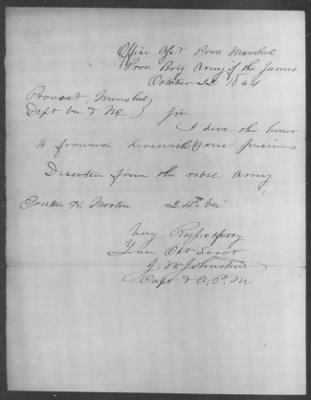 Office Asst Prov Marshal
Prov Brig Army of the James
October 1864
Provost Marshal
Dept Va & NC. Sir
I have the honor
to forward herewith one
Deserter from the rebel army
Morton 24th Va
Very Respectfully
Your Obt Servt
J. W. Johnston
Capt & A. P. M.